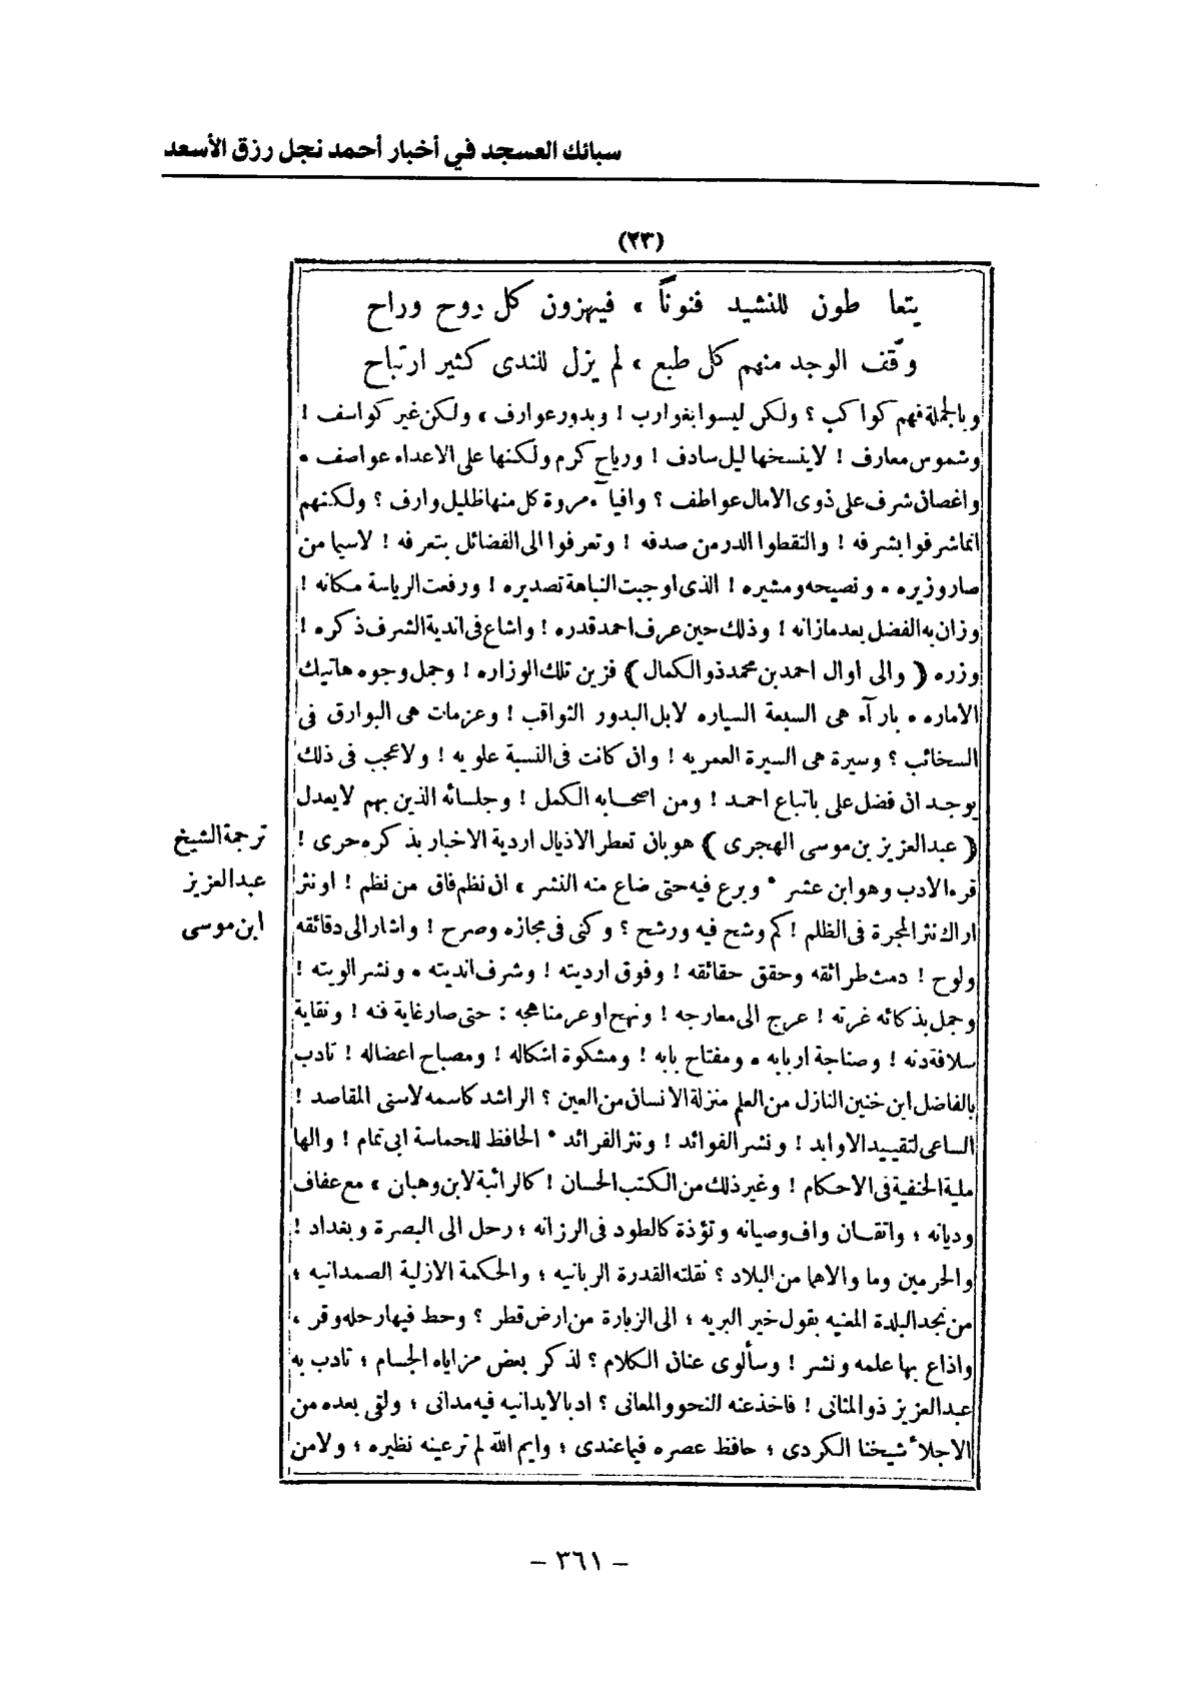 سبائك العسجد في أخبار أحمد نجل رزق الأسعد
(٢٣)
يتعا طون للنشيد فنوناً ، فيهزون كل روح وراح
وقف الوجد منهم كل طبع ، لم يزل للندى كثير ارتباح
وبالجملة فهم كواكب ؟ ولكن ليسوا بغوارب ! وبدور عوارف ، ولكن غير كواسف !
وشموس معارف ! لا ينسخها ليل سادف ! ورياح كرم ولكنها على الاعداء عواصف •
واغصان شرف على ذوى الامال عواطف ؟ وافياء مروة كل منها ظليل وارف ؟ ولكنهم
انما شرفوا بشرفه ! والتقطوا الدر من صدفه ! وتعرفوا الى الفضائل بتعرفه ! لاسيما من
صار وزيره • ونصيحه ومشيره ! الذى اوجبت النباهة تصديره ! ورفعت الرياسة مكانه !
وزان به الفضل بعد مازانه ! وذلك حين عرف احمد قدره ! واشاع فى اندية الشرف ذكره !
وزره ( والى اوال احمد بن محمد ذو الكمال ) فزين تلك الوزاره ! وجمل وجوه هاتيك
الاماره • بارآء هى السبعة السياره لابل البدور الثواقب ! وعزمات هى البوارق فى
السخائب ؟ وسيرة هى السيرة العمريه ! وان كانت فى النسبة علويه ! ولا عجب فى ذلك
يوجد ان فضل على باتباع احمد ! ومن اصحابه الكمل ! وجلسائه الذين بهم لا يعدل
( عبد العزيز بن موسى الهجرى ) هو بان تعطر الاذيال اردية الاخبار بذكره حرى !
قرء الادب وهو ابن عشر • وبرع فيه حتى ضاع منه النشر ، ان نظم فاق من نظم ! او نثر
اراك نثر المجرة فى الظلم ! كم وشح فيه ورشح ؟ وكنى فى مجازه وصرح ! واشار الى دقائقه
ولوح ! دمث طرائقه وحقق حقائقه ! وفوق ارديته ! وشرف انديته • ونشر الويته !
وجمل بذكائه غرته ! عرج الى معارجه ! ونهج اوعر مناهجه : حتى صار غاية فنه ! ونقاية
سلافة دنه ! وصناجة اربابه • ومفتاح بابه ! ومشكوة اشكاله ! ومصباح اعضاله ! تادب
بالفاضل ابن خنين النازل من العلم منزلة الانسان من العين ؟ الراشد كاسمه لاسنى المقاصد !
الساعى لتقييد الاوابد ! ونشر الفوائد ! ونثر الفرائد • الحافظ للحماسة ابى تمام ! والها
ملية الحنفية فى الاحكام ! وغير ذلك من الكتب الحسان ! كالرائية لابن وهبان ، مع عفاف
وديانه ؛ واتقان واف وصيانه وتؤذة كالطود فى الرزانه ؛ رحل الى البصرة وبغداد !
والحرمين وما والاهما من البلاد ؟ نقلته القدرة الربانيه ؛ والحكمة الازلية الصمدانيه ؛
من نجد البلدة المعنيه بقول خير البريه ؛ الى الزبارة من ارض قطر ؟ وحط فيها رحله وقر ،
واذاع بها علمه ونشر ! وسألوى عنان الكلام ؟ لذكر بعض مزاياه الجسام ؛ تادب به
عبد العزيز ذو المثانى ! فاخذ عنه النحو والمعانى ؟ ادبا لا يدانيه فيه مدانى ؛ ولقى بعده من
الاجلاء شيخنا الكردى ؛ حافظ عصره فيما عندى ؛ وايم الله لم تر عينه نظيره ؛ ولا من
ترجمة الشيخ
عبد العزيز
ابن موسى
– ٣٦١ –